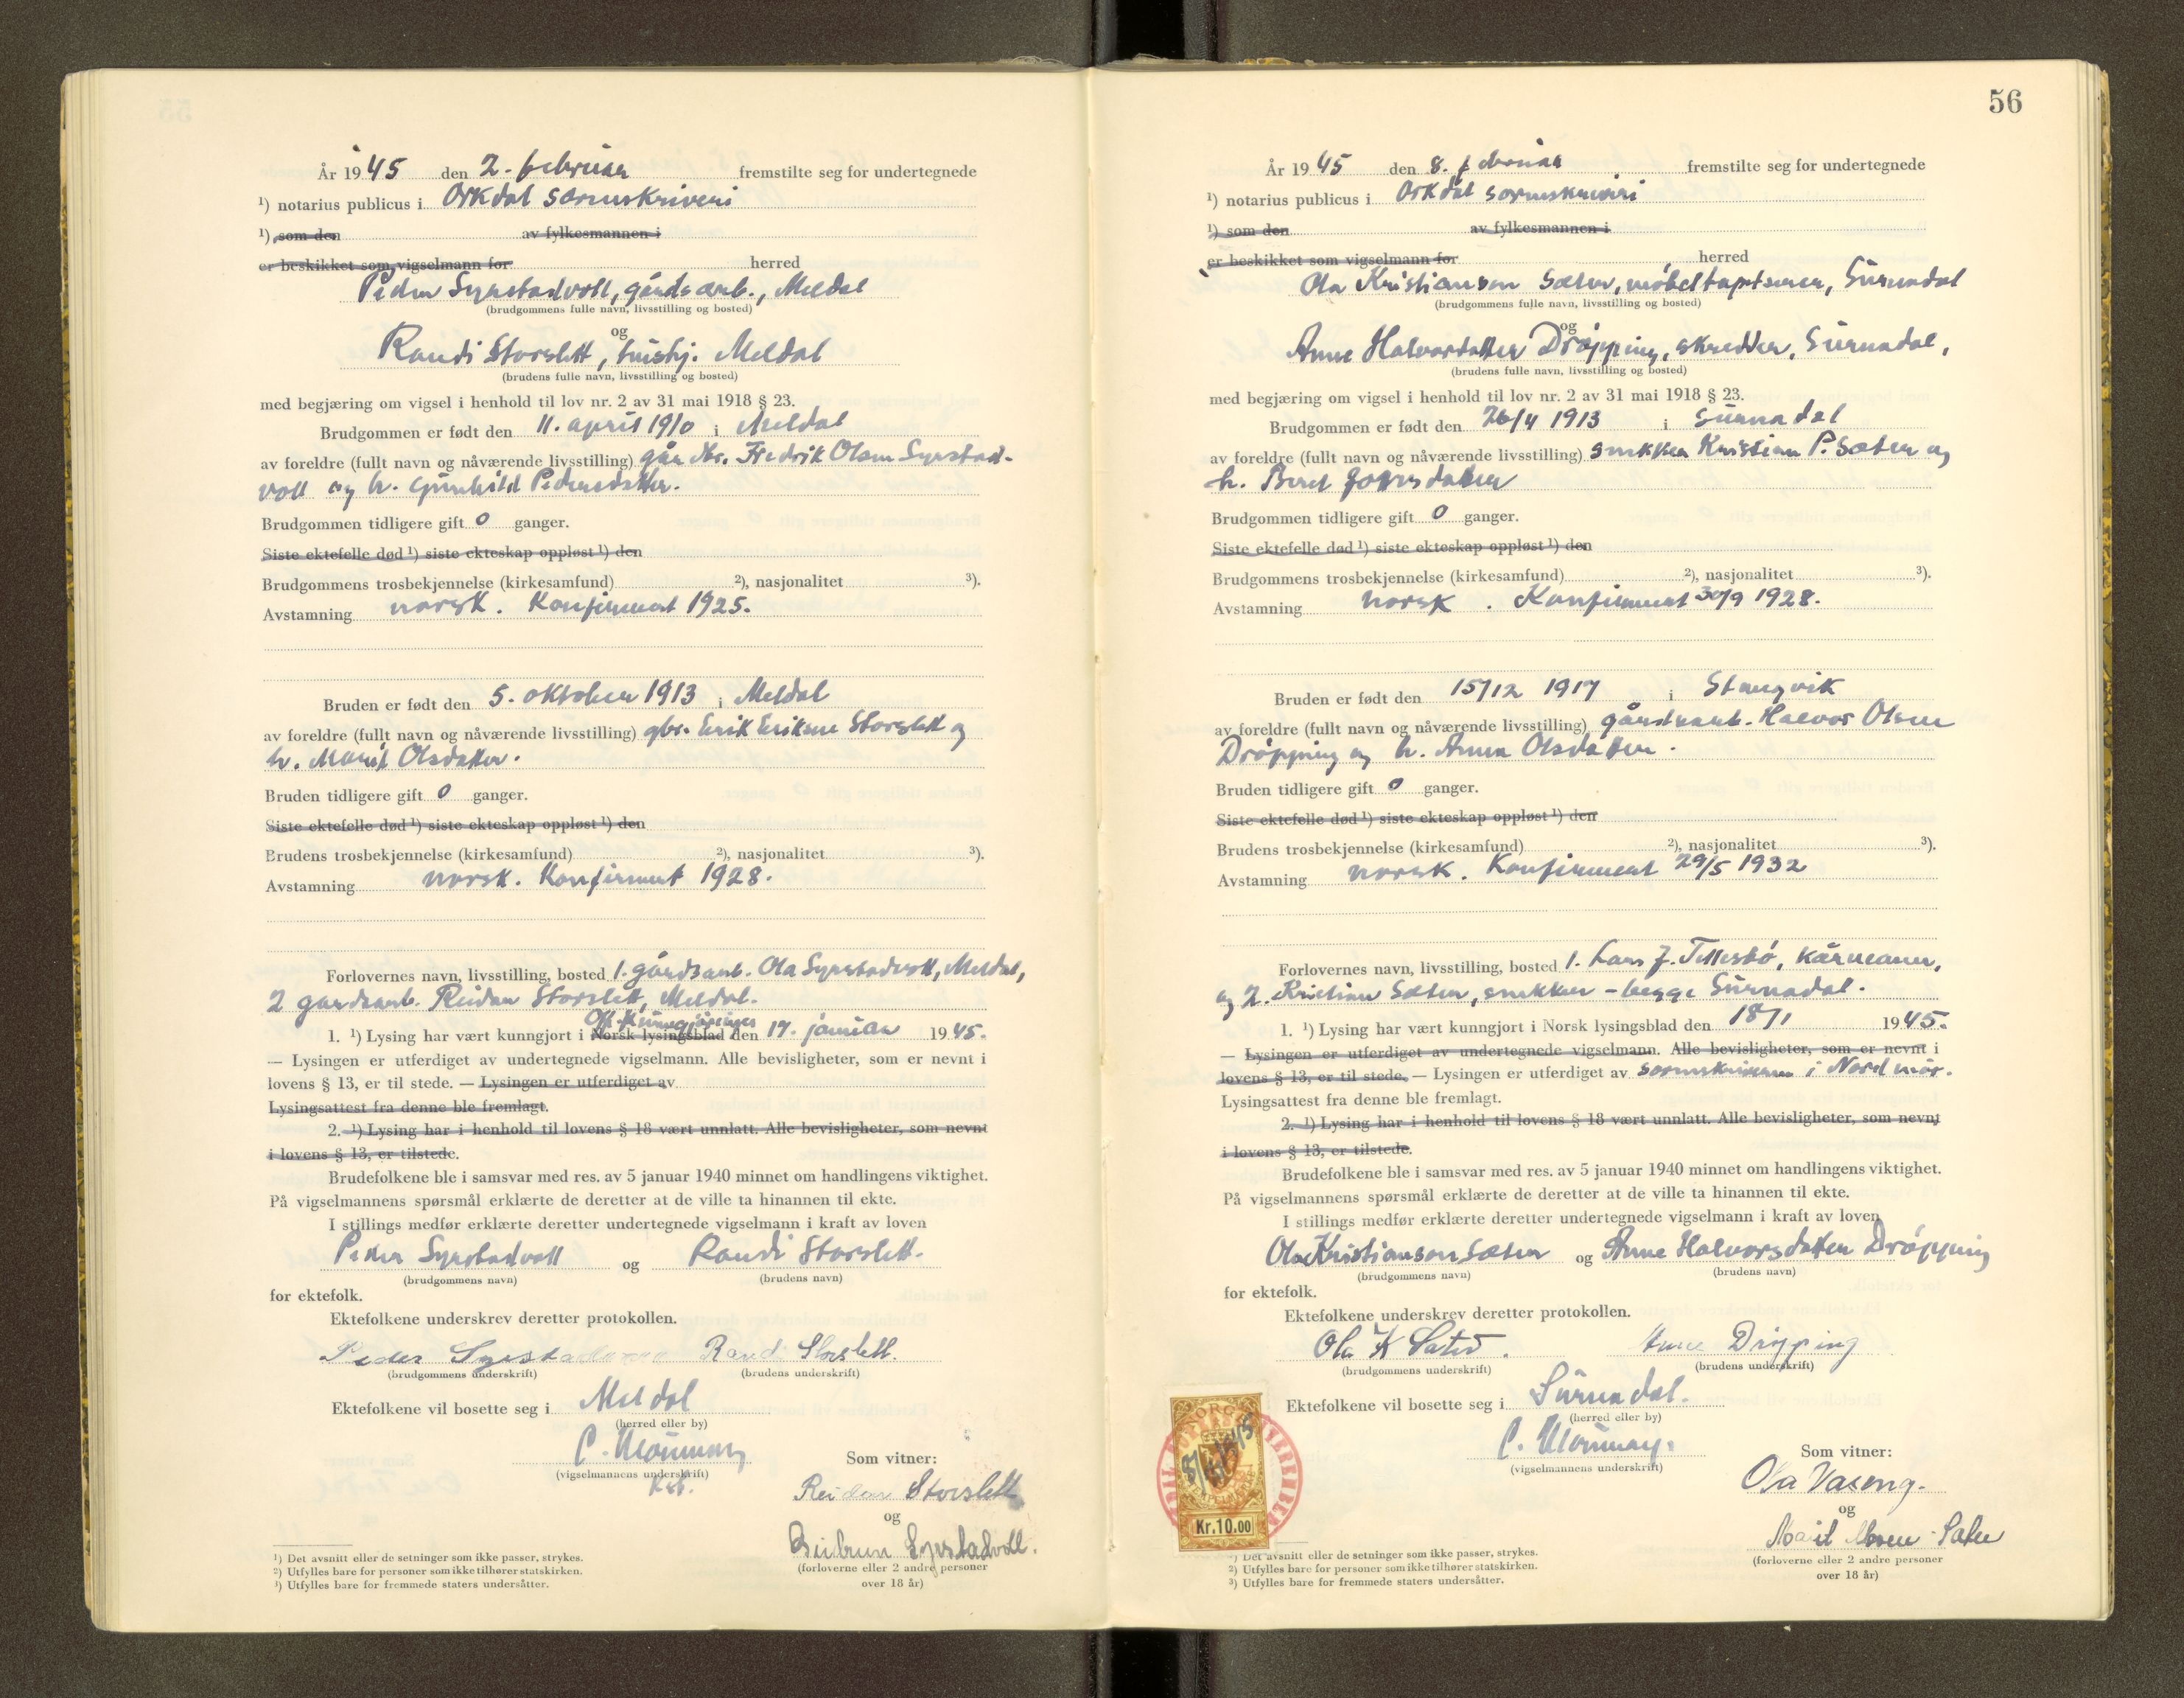 År 1945 den 2. februar fremstilte seg for undertegnede
¹) notarius publicus i Orkdal sorenskriveri
¹) som den av fylkesmannen i
er beskikket som vigselmann for herred
Peder Syrstadvoll, gårdsarb., Meldal
(brudgommens fulle navn, livsstilling og bosted)
og
Randi Storslett, hushj. Meldal
(brudens fulle navn, livsstilling og bosted)
med begjæring om vigsel i henhold til lov nr. 2 av 31 mai 1918 § 23.
Brudgommen er født den 11. april 1910 i Meldal
av foreldre (fullt navn og nåværende livsstilling) gårdbr. Fredrik Olsen Syrstad-
voll og h. Gunhild Pedersdatter.
Brudgommen tidligere gift 0 ganger.
Siste ektefelle død ¹) siste ekteskap oppløst ¹) den
Brudgommens trosbekjennelse (kirkesamfund) ²), nasjonalitet ³).
Avstamning norsk. Konfirmert 1925.
Bruden er født den 5. oktober 1913 i Meldal
av foreldre (fullt navn og nåværende livsstilling) gbr. Erik Eriksen Storslett og
h. Marit Olsdatter.
Bruden tidligere gift 0 ganger.
Siste ektefelle død ¹) siste ekteskap oppløst ¹) den
Brudens trosbekjennelse (kirkesamfund) ²), nasjonalitet ³).
Avstamning norsk. Konfirmert 1928.
Forlovernes navn, livsstilling, bosted 1. gårdsarb. Ola Syrstadvoll, Meldal,
2 gardsarb. Reidar Storslett, Meldal.
Off. Kunngjøringer
1. ¹) Lysing har vært kunngjort i Norsk lysingsblad den 17. januar 1945.
— Lysingen er utferdiget av undertegnede vigselmann. Alle bevisligheter, som er nevnt i
lovens § 13, er til stede. — Lysingen er utferdiget av
Lysingsattest fra denne ble fremlagt.
2. ¹) Lysing har i henhold til lovens § 18 vært unnlatt. Alle bevisligheter, som nevnt
i lovens § 13, er tilstede.
Brudefolkene ble i samsvar med res. av 5 januar 1940 minnet om handlingens viktighet.
På vigselmannens spørsmål erklærte de deretter at de ville ta hinannen til ekte.
I stillings medfør erklærte deretter undertegnede vigselmann i kraft av loven
Peder Syrstadvoll og Randi Storslett.
(brudgommens navn) (brudens navn)
for ektefolk.
Ektefolkene underskrev deretter protokollen.
Peder Syrstadvoll Randi Storslett.
(brudgommens underskrift) (brudens underskrift)
Ektefolkene vil bosette seg i Meldal
(herred eller by)
(vigselmannens underskrift)
Som vitner:
Reidar Storslett
og
Syrstadvoll.
(forloverne eller 2 andre personer
over 18 år)
¹) Det avsnitt eller de setninger som ikke passer, strykes.
²) Utfylles bare for personer som ikke tilhører statskirken.
³) Utfylles bare for fremmede staters undersåtter.
56
År 1945 den 8. februar fremstilte seg for undertegnede
¹) notarius publicus i Orkdal sorenskriveri
¹) som den av fylkesmannen i
er beskikket som vigselmann for herred
Ola Kristianson Sæter, møbeltapetserer, Surnadal
(brudgommens fulle navn, livsstilling og bosted)
og
Anne Halvorsdatter Drøpping, skredder, Surnadal,
(brudens fulle navn, livsstilling og bosted)
med begjæring om vigsel i henhold til lov nr. 2 av 31 mai 1918 § 23.
Brudgommen er født den 26/4 1913 i Surnadal
av foreldre (fullt navn og nåværende livsstilling) snekker Kristian P. Sæter og
h. Beret
Brudgommen tidligere gift 0 ganger.
Siste ektefelle død ¹) siste ekteskap oppløst ¹) den
Brudgommens trosbekjennelse (kirkesamfund) ²), nasjonalitet ³).
Avstamning norsk. Konfirmert 30/9 1928.
Bruden er født den 15/12 1917 i Stangvik
av foreldre (fullt navn og nåværende livsstilling) gårdsarb. Halvor Olsen
Drøpping og h. Anna Olsdatter.
Bruden tidligere gift 0 ganger.
Siste ektefelle død ¹) siste ekteskap oppløst ¹) den
Brudens trosbekjennelse (kirkesamfund) ²), nasjonalitet ³).
Avstamning norsk. Konfirmert 29/5 1932
Forlovernes navn, livsstilling, bosted 1. Lars J.
og 2. Kristian Sæter, snekker – begge Surnadal.
1. ¹) Lysing har vært kunngjort i Norsk lysingsblad den 18/1 1945.
— Lysingen er utferdiget av undertegnede vigselmann. Alle bevisligheter, som er nevnt i
lovens § 13, er til stede. — Lysingen er utferdiget av sorenskriveren i Nordmør.
Lysingsattest fra denne ble fremlagt.
2. ¹) Lysing har i henhold til lovens § 18 vært unnlatt. Alle bevisligheter, som nevnt
i lovens § 13, er tilstede.
Brudefolkene ble i samsvar med res. av 5 januar 1940 minnet om handlingens viktighet.
På vigselmannens spørsmål erklærte de deretter at de ville ta hinannen til ekte.
I stillings medfør erklærte deretter undertegnede vigselmann i kraft av loven
Ola Kristianson Sæter og Anne Halvorsdatter Drøpping
(brudgommens navn) (brudens navn)
for ektefolk.
Ektefolkene underskrev deretter protokollen.
Ola K Sæter. Anne Drøpping
(brudgommens underskrift) (brudens underskrift)
Ektefolkene vil bosette seg i Surnadal.
(herred eller by)
(vigselmannens underskrift)
Som vitner:
Ola Vaseng.
og
Sæter
(forloverne eller 2 andre personer
over 18 år)
NORGE
Kr.10.00
¹) Det avsnitt eller de setninger som ikke passer, strykes.
²) Utfylles bare for personer som ikke tilhører statskirken.
³) Utfylles bare for fremmede staters undersåtter.